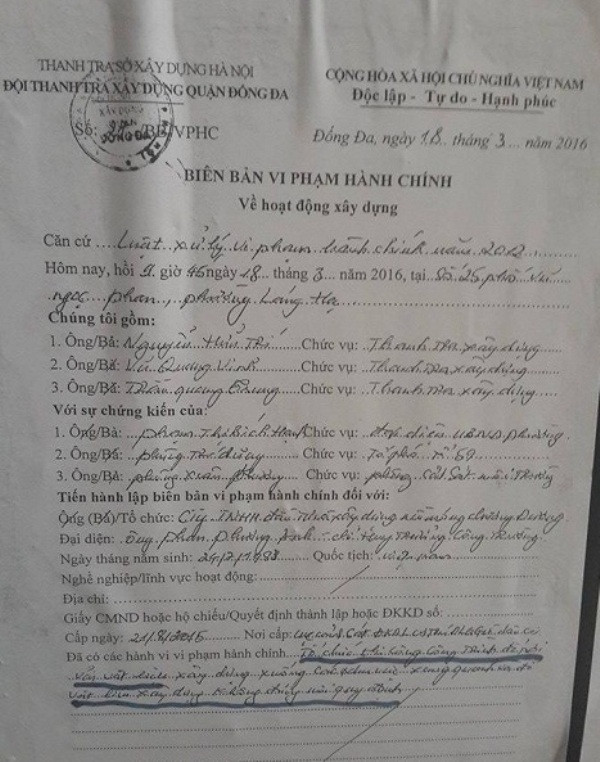 THANH TRA SỞ XÂY DỰNG HÀ NỘI
ĐỘI THANH TRA XÂY DỰNG QUẬN ĐỐNG ĐA
CỘNG HÒA XÃ HỘI CHỦ NGHĨA VIỆT NAM
Độc lập - Tự do - Hạnh phúc
Số: /BB-VPHC
Đống Đa, ngày 18 tháng 3 năm 2016
BIÊN BẢN VI PHẠM HÀNH CHÍNH
Về hoạt động xây dựng
Căn cứ Luật xử lý vi phạm hành chính năm 2012
Hôm nay, hồi 9 giờ 45 ngày 18 tháng 3 năm 2016, tại Số 25 phố Vũ
Ngọc Phan, phường Láng Hạ
Chúng tôi gồm:
1. Ông/Bà: Nguyễn Chức vụ: Thanh tra xây dựng
2. Ông/Bà: Vũ Quang Vinh Chức vụ: Thanh tra xây dựng
3. Ông/Bà: Trần Quang Chung Chức vụ: Thanh tra xây dựng
Với sự chứng kiến của:
1. Ông/Bà: Phạm Thị Bích Hạnh Chức vụ: Đại diện UBND phường
2. Ông/Bà: Phùng Chức vụ: Tổ phó
3. Ông/Bà: Phùng Xuân Chức vụ: phòng môi trường
Tiến hành lập biên bản vi phạm hành chính đối với:
Ông (Bà)/Tổ chức: Cty TNHH đầu tư xây dựng nền móng Chương Dương
Đại diện: Ông Phan Phương Anh - chỉ huy trưởng công trường
Ngày tháng năm sinh: Quốc tịch: Việt Nam
Nghề nghiệp/lĩnh vực hoạt động:
Địa chỉ:
Giấy CMND hoặc hộ chiếu/Quyết định thành lập hoặc ĐKKD số:
Cấp ngày: 21/8/2015 Nơi cấp:
Đã có các hành vi vi phạm hành chính: Tổ chức thi công công trình để rơi
vãi vật liệu xây dựng xuống các khu vực xung quanh và để
vật liệu xây dựng không đúng nơi quy định